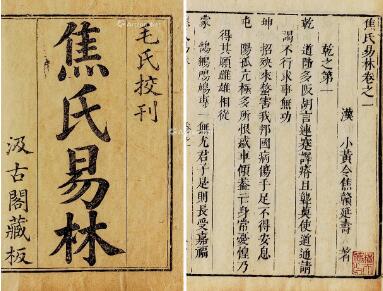 毛氏挍刊
焦氏易林
汲古閣藏板
焦氏易林卷之一
漢 小黃令焦贛延壽 著
乾之第一
乾 道陟多阪胡言連蹇譯瘖且聾莫使道通請
謁不行求事無功
坤 招殃來螫害我邦國病傷手足不得安息
屯 陽孤亢極多所恨惑車傾蓋亡身常憂惶乃
得其願雌雄相從
蒙 鵠鵴鳲鳩專一無尤君子是則長受嘉福